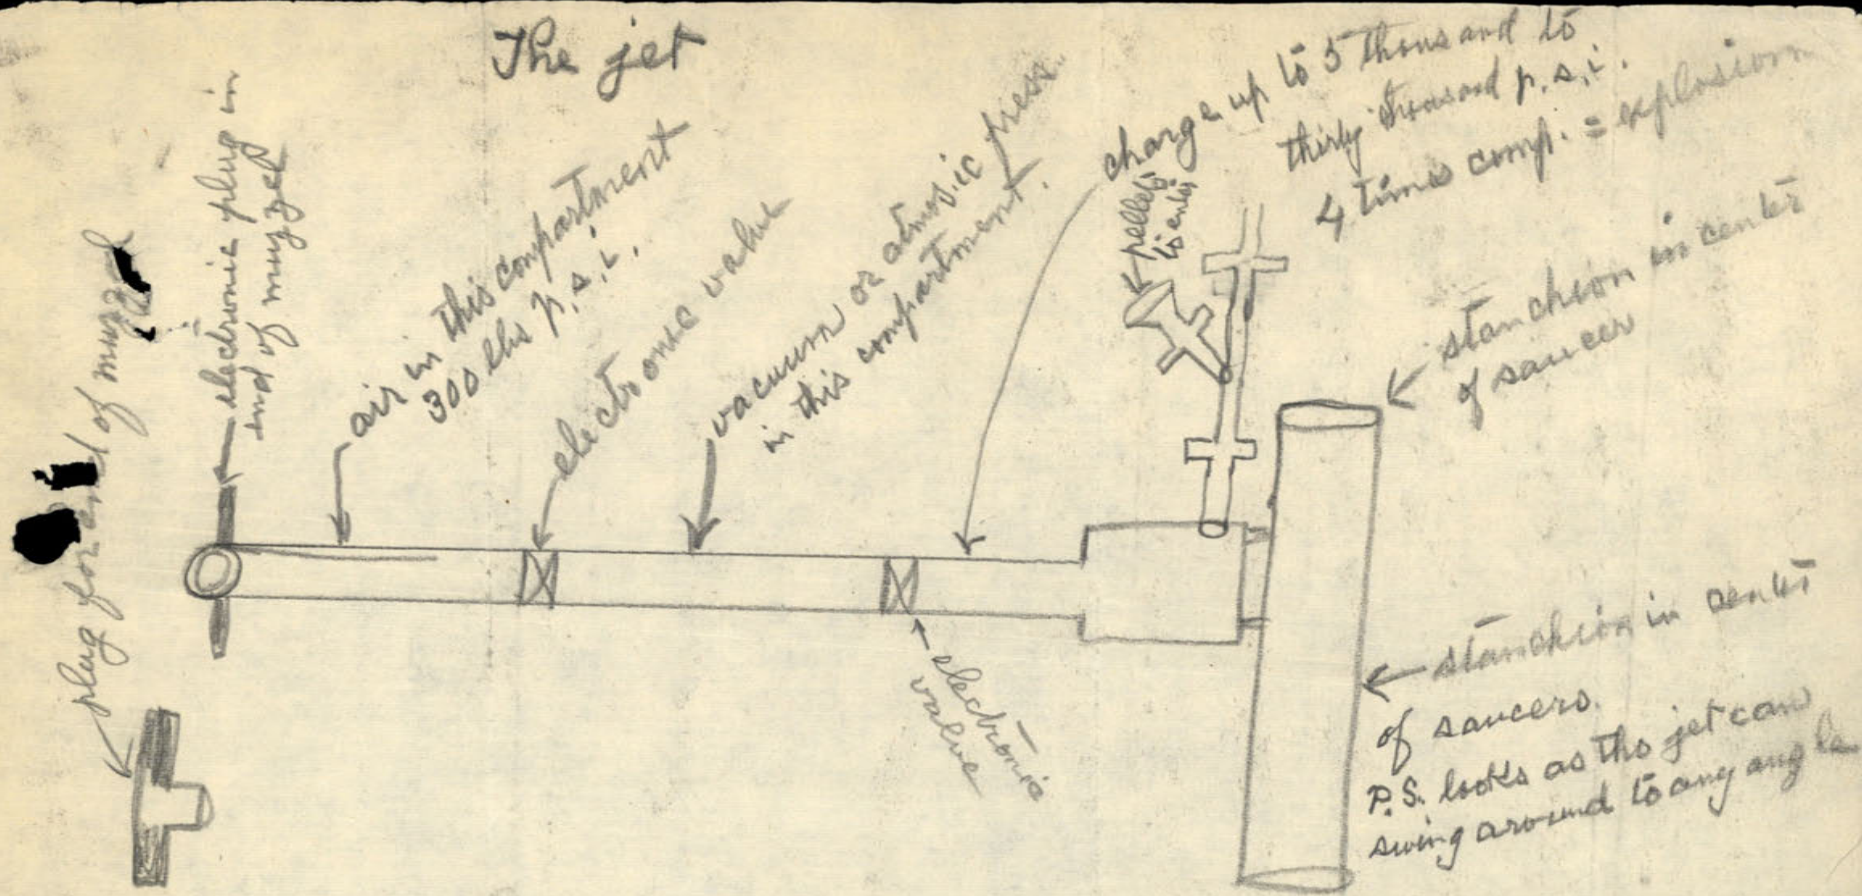 The jet
plug for end of muzzel
electronic plug in
end of muzzel
air in this compartment
300 lbs p.s.i.
electronic valve
vacuum or atmosic press.
in this compartment.
charge up to 5 thousand to
thirty thousand p.s.i.
4 times comp. = explosion
pellets
to enter
stancheon in center
of saucer
electronic
valve
stancheon in center
of saucers.
P.S. looks as tho jet can
swing around to any angle